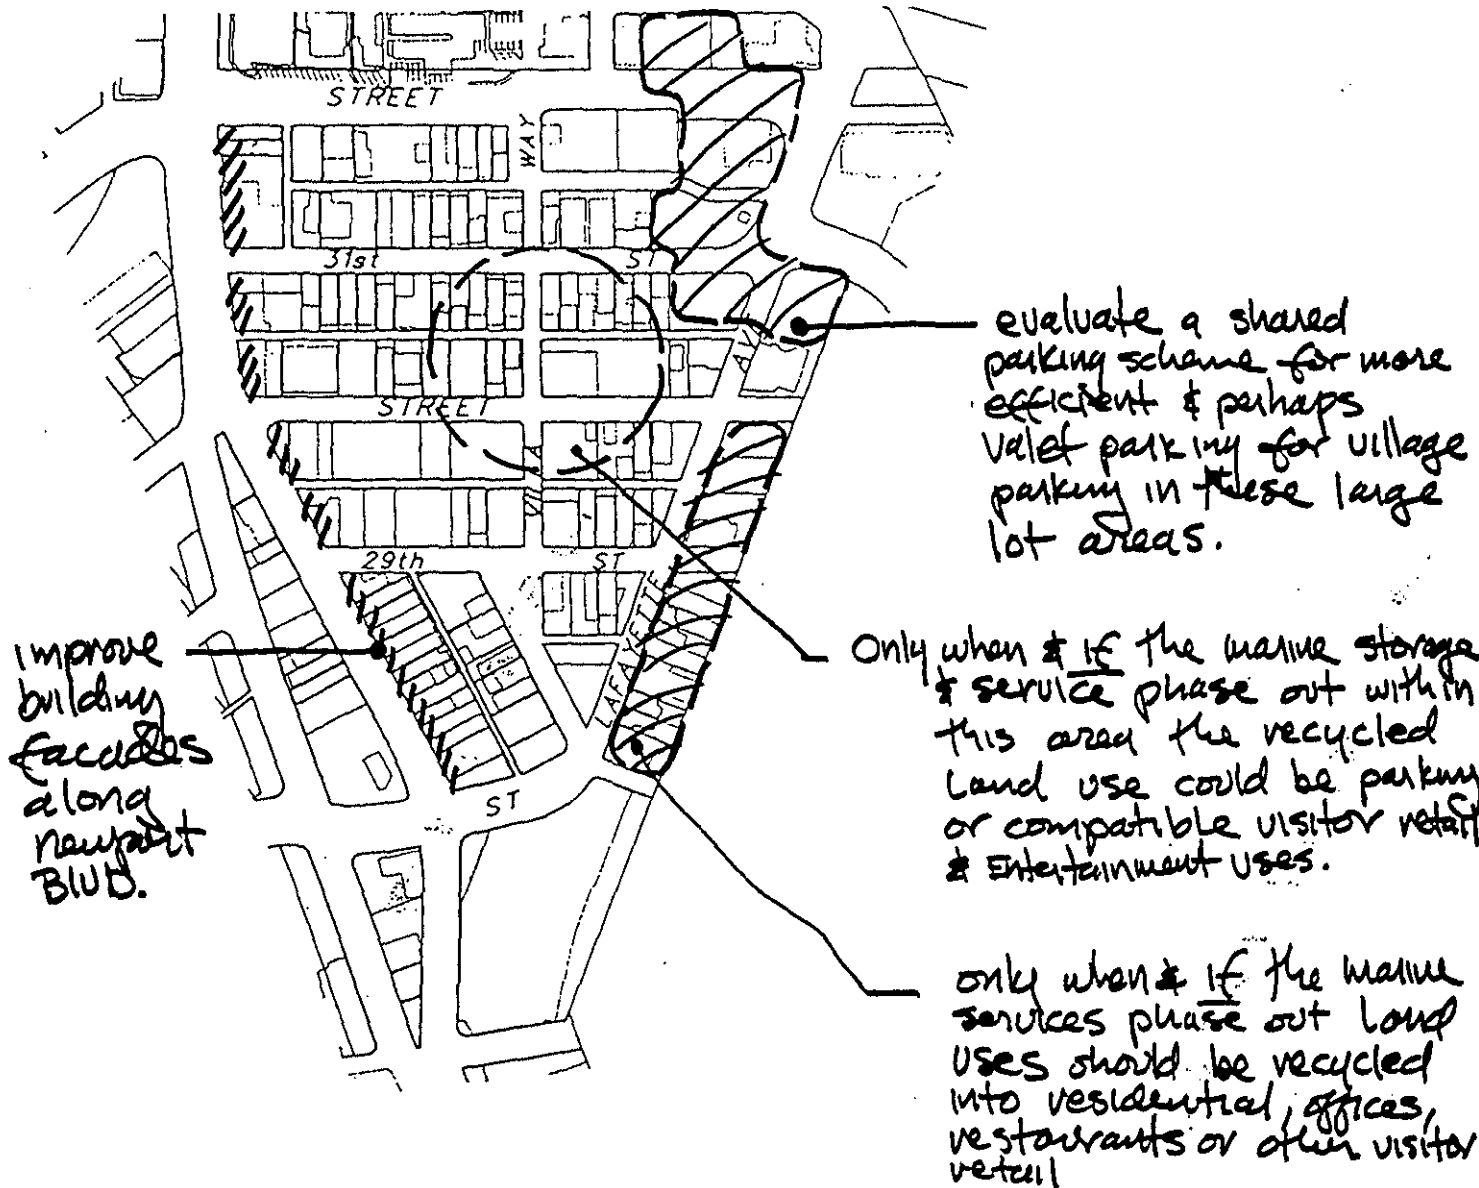 STREET
WAY
31st ST
AVE
STREET
29th ST
LAFAYETTE
ST
evaluate a shared
parking scheme for more
efficient & perhaps
valet parking for village
parking in these large
lot areas.
Only when & if the marine storage
& service phase out within
this area the recycled
Land use could be parking
or compatible visitor retail
& Entertainment uses.
improve
building
facades
along
newport
BLVD.
only when & if the marine
services phase out Land
uses should be recycled
into residential, offices,
restaurants or other visitor
retail